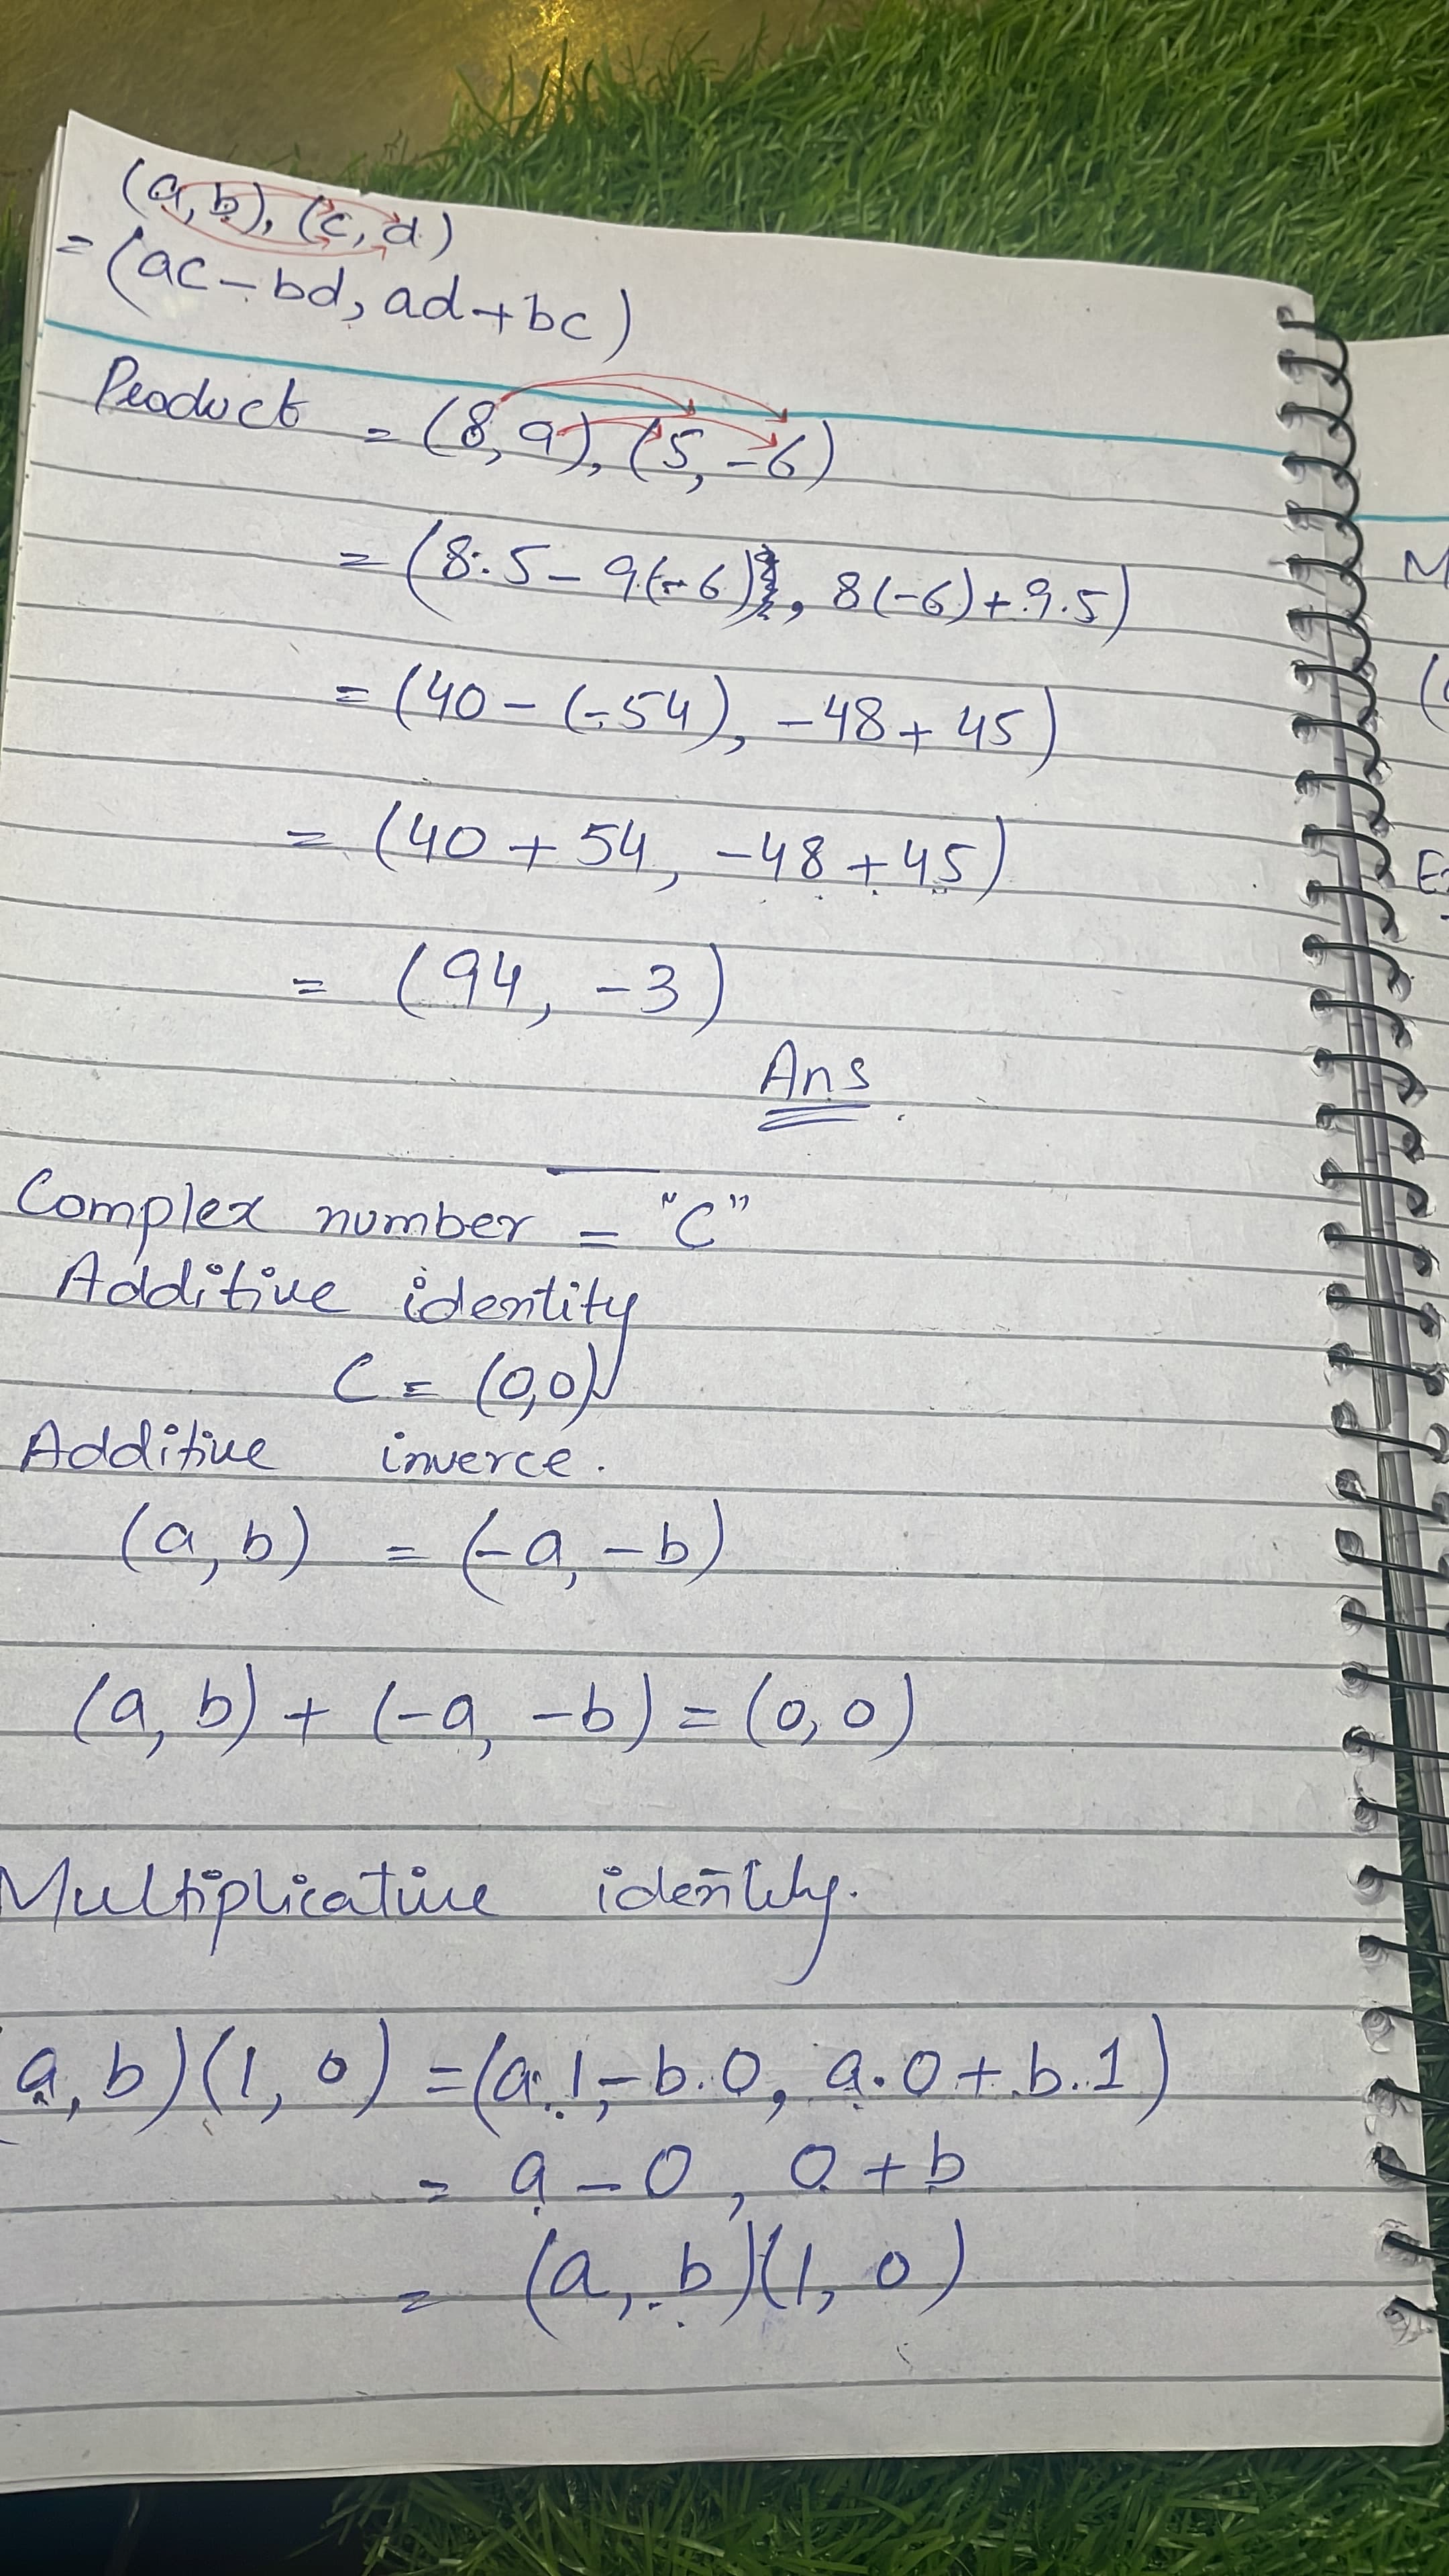 (a,b), (c,d)
= (ac-bd, ad+bc)
Product = (8,9), (5,-6)
= (8.5-9.(-6), 8(-6)+9.5)
= (40-(-54), -48+45)
= (40+54, -48+45)
= (94, -3)
Ans.
Complex number = "C"
Additive identity
C = (0,0)
Additive inverce.
(a, b) = (-a, -b)
(a, b) + (-a, -b) = (0, 0)
Multiplicative identity.
a, b)(1, 0) = (a.1-b.0, a.0+b.1)
= a-0, 0+b
= (a, b)(1, 0)